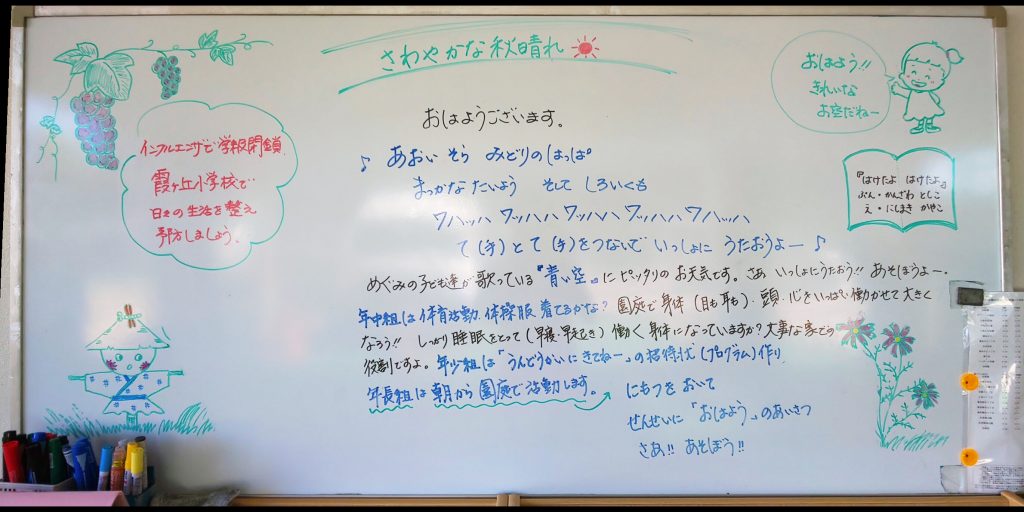 さわやかな秋晴れ
おはよう!!
きれいな
お空だねー
おはようございます。
インフルエンザで学級閉鎖
霞ヶ丘小学校で
日々の生活を整え
予防しましょう。
♪ あおい そら みどりの はっぱ
まっかな たいよう そして しろいくも
ワハッハ ワッハハ ワッハハ ワッハハ ワハッハ
て(手)とて(手)をつないで いっしょに うたおうよー ♪
『はけたよ はけたよ』
ぶん・かんざわ としこ
え・にしまき かやこ
めぐみの子ども達が歌っている『青い空』にピッタリの お天気です。さあ いっしょにうたおう!! あそぼうよー。
年中組は体育活動、体操服 着てるかな? 園庭で身体(目も耳も)・頭・心をいっぱい働かせて大きく
なろう!! しっかり睡眠をとって(早寝・早おき)働く身体になっていますか?大事な家での
役割ですよ。年少組は「うんどうかいに きてねー」の招待状(プログラム)作り、
年長組は朝から園庭で活動します。
にもつを おいて
せんせいに「おはよう」のあいさつ
さあ!! あそぼう!!